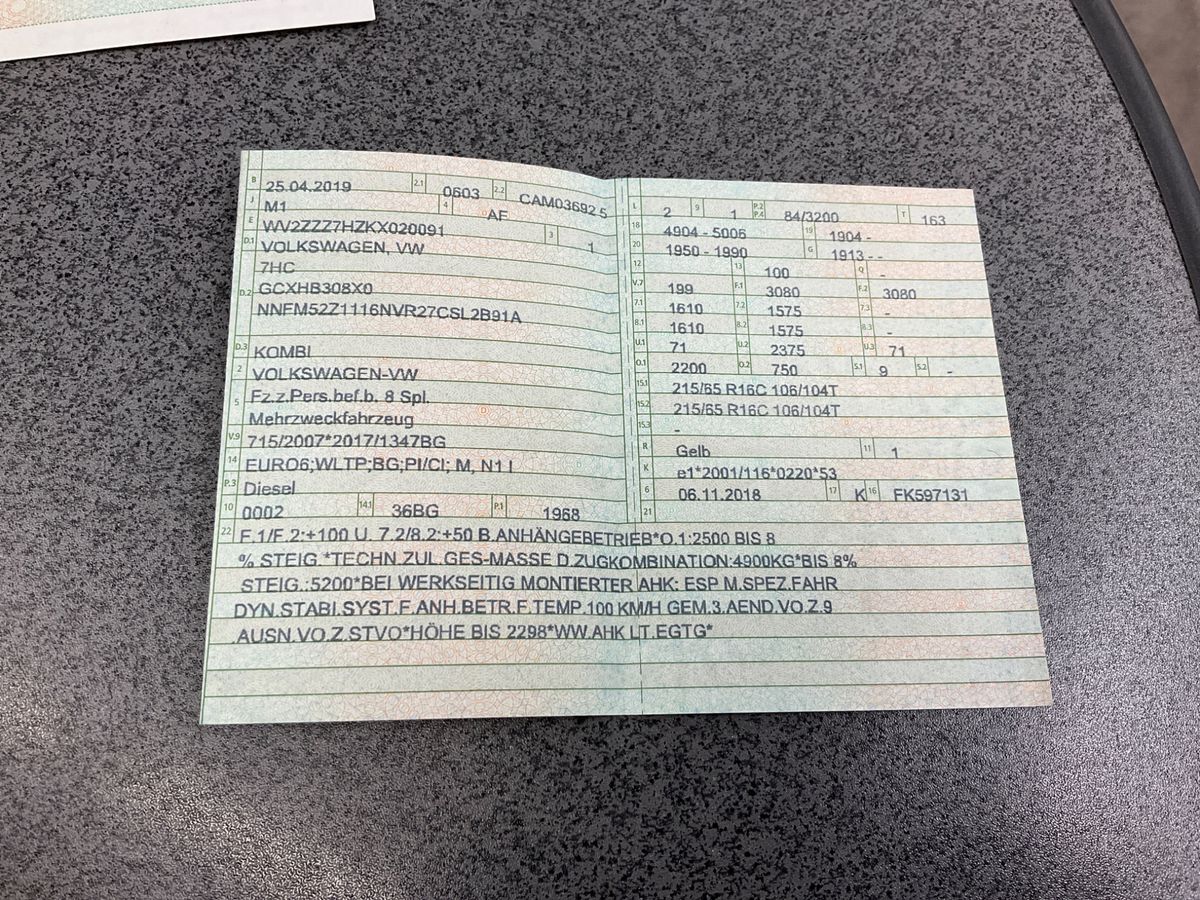 B 25.04.2019 2.1 0603 2.2 CAM03692 5
J M1 4 AF
E WV2ZZZ7HZKX020091 3 1
D.1 VOLKSWAGEN, VW
7HC
D.2 GCXHB308X0
NNFM52Z1116NVR27CSL2B91A
D.3 KOMBI
2 VOLKSWAGEN-VW
5 Fz.z.Pers.bef.b. 8 Spl.
Mehrzweckfahrzeug
V.9 715/2007*2017/1347BG
14 EURO6;WLTP;BG;PI/CI; M, N1 I
P.3 Diesel
10 0002 14.1 36BG P.1 1968
L 2 9 1 P.2 P.4 84/3200 T 163
18 4904 - 5006 19 1904 -
20 1950 - 1990 G 1913 - -
12 13 100 Q -
V.7 199 F.1 3080 F.2 3080
7.1 1610 7.2 1575 7.3 -
8.1 1610 8.2 1575 8.3 -
U.1 71 U.2 2375 U.3 71
O.1 2200 O.2 750 S.1 9 S.2 -
15.1 215/65 R16C 106/104T
15.2 215/65 R16C 106/104T
15.3 -
R Gelb 11 1
K e1*2001/116*0220*53
6 06.11.2018 17 K 16 FK597131
21
22 F.1/F.2:+100 U. 7.2/8.2:+50 B.ANHÄNGEBETRIEB*O.1:2500 BIS 8
% STEIG.*TECHN.ZUL.GES-MASSE D.ZUGKOMBINATION:4900KG*BIS 8%
STEIG.:5200*BEI WERKSEITIG MONTIERTER AHK: ESP M.SPEZ.FAHR
DYN.STABI.SYST.F.ANH.BETR.F.TEMP.100 KM/H GEM.3.AEND.VO.Z.9
AUSN.VO.Z.STVO*HÖHE BIS 2298*WW.AHK LT.EGTG*